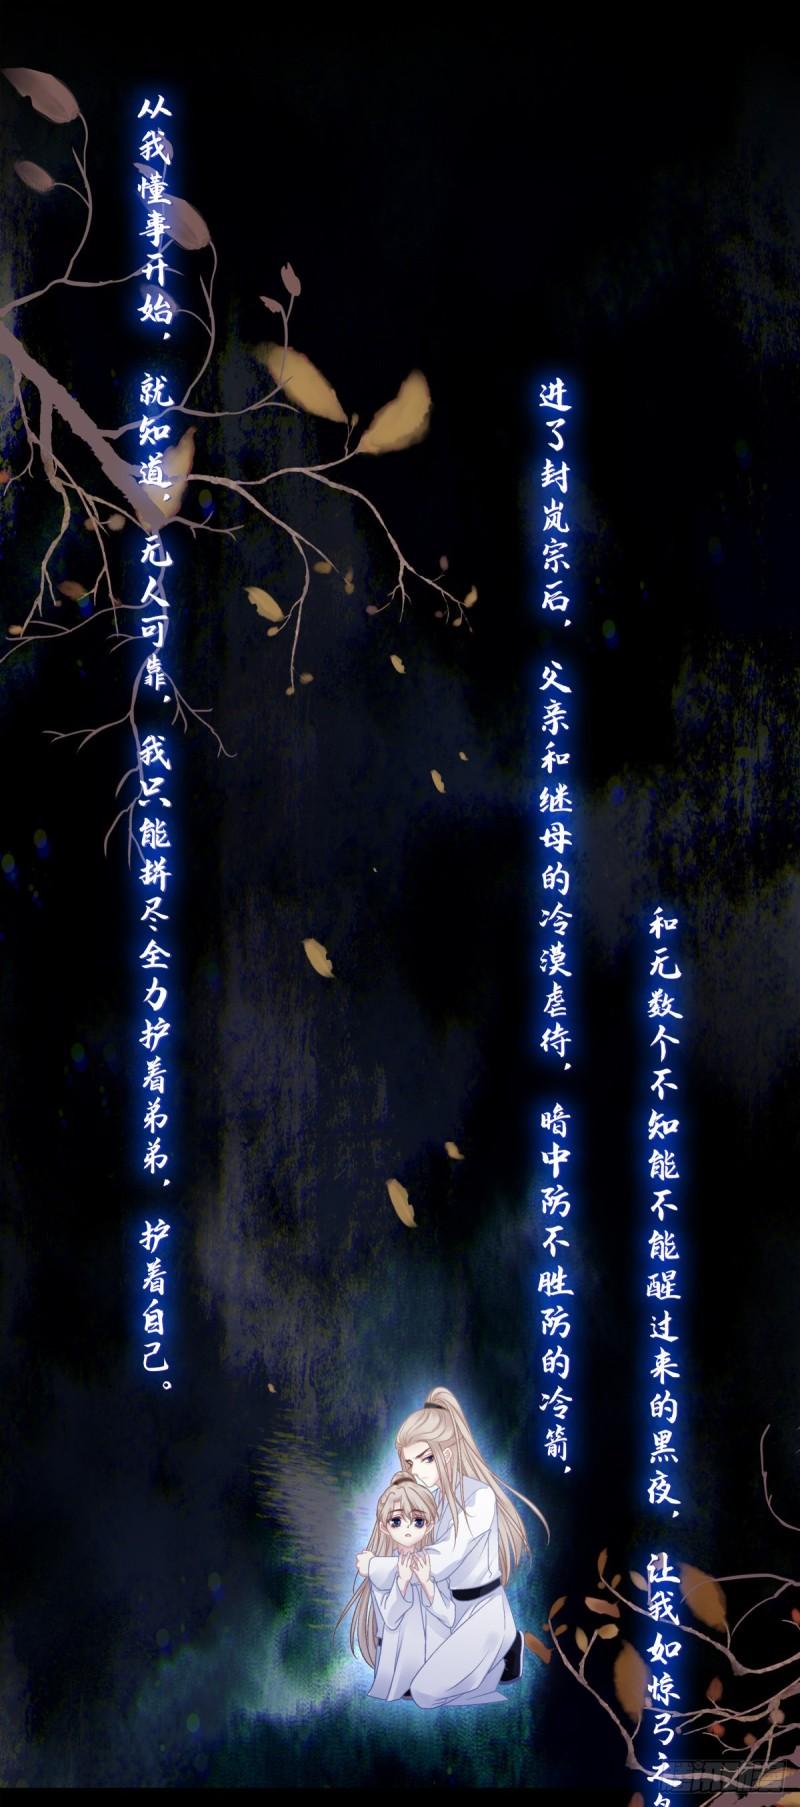 从我懂事开始，就知道，无人可靠，我只能拼尽全力护着弟弟，护着自己。
进了封岚宗后，父亲和继母的冷漠虐待，暗中防不胜防的冷箭，
和无数个不知能不能醒过来的黑夜，让我如惊弓之
腾讯动漫